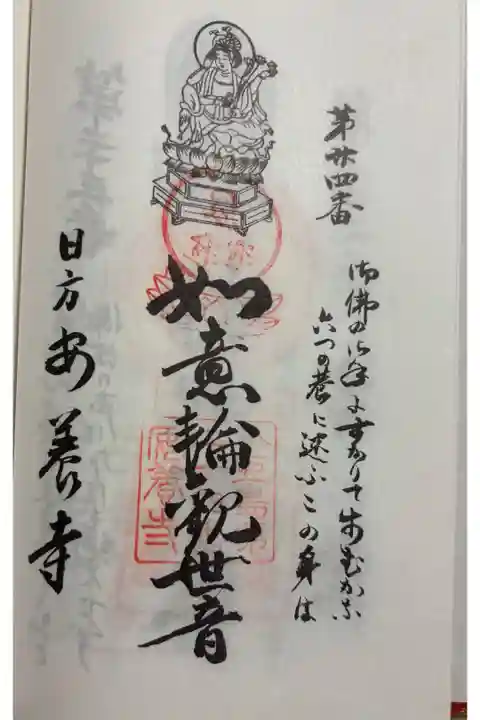 第廿四番
御佛の御手にすがりて歩むかな
六つの巷に迷ふこの身は
如意輪観世音
日方安養寺